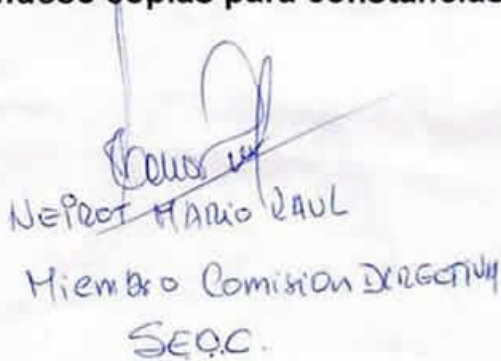 copias para constancias
NEIROT MARIO RAUL
Miembro Comision DIRECTIVA
SEOC.